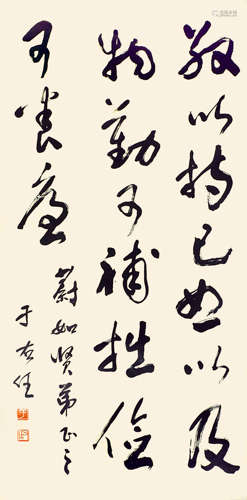 敬以持己恕以及
物勤可補拙儉
可養廉
蔚如贤弟正之
于右任